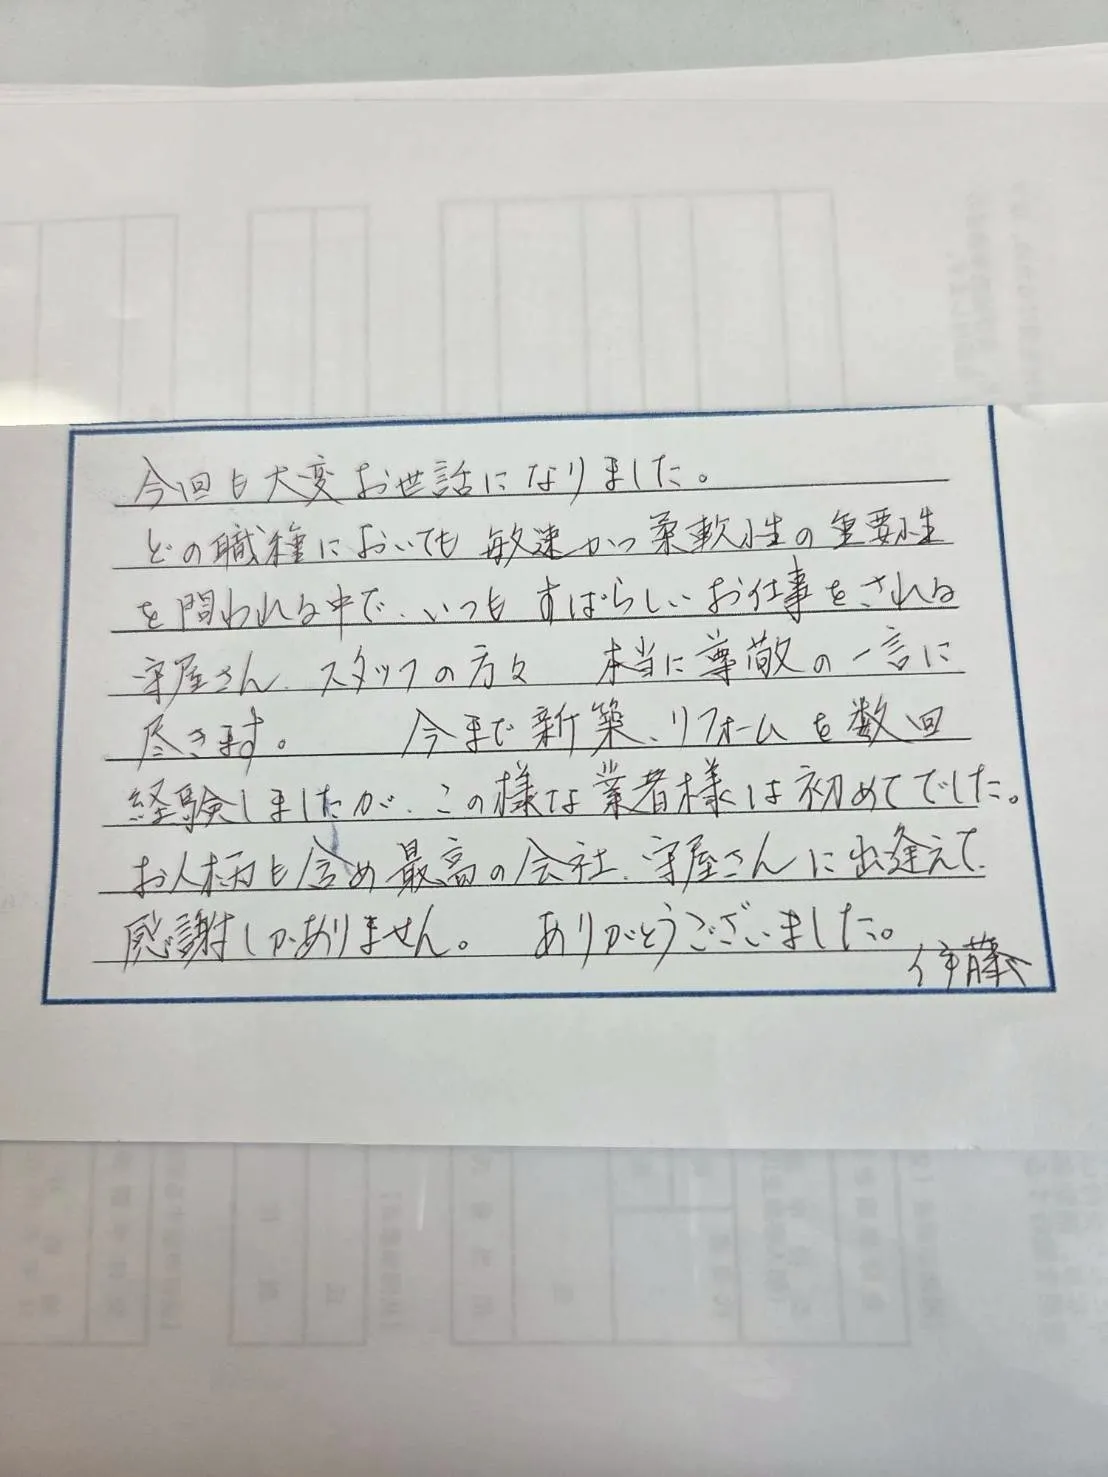 今回も大変お世話になりました。
どの職種においても敏速かつ柔軟性の重要性
を問われる中で、いつもすばらしいお仕事をされる
守屋さん、スタッフの方々 本当に尊敬の一言に
尽きます。 今まで新築、リフォームを数回
経験しましたが、この様な業者様は初めてでした。
お人柄も含め最高の会社、守屋さんに出逢えて、
感謝しかありません。 ありがとうございました。
伊藤